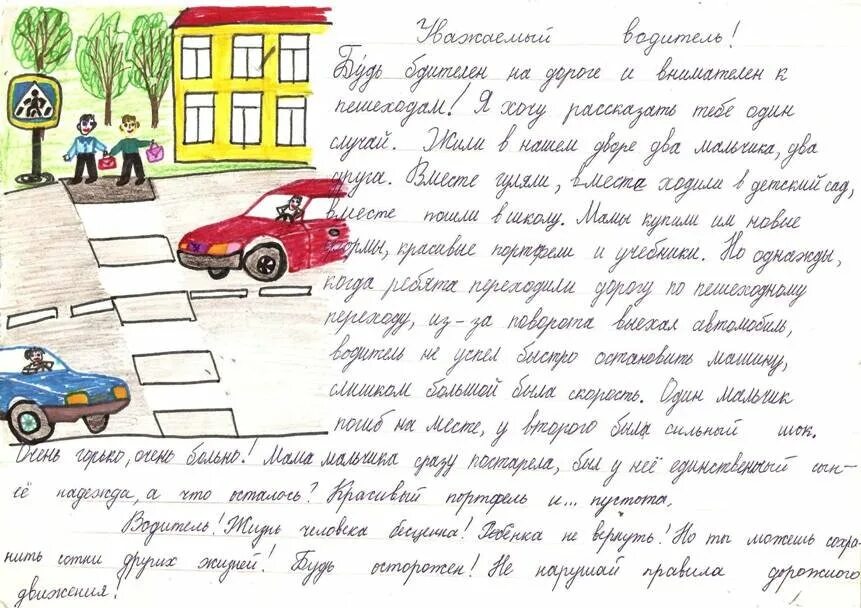 Уважаемый водитель!
Будь бдителен на дороге и внимателен к
пешеходам! Я хочу рассказать тебе один
случай. Жили в нашем дворе два мальчика, два
друга. Вместе гуляли, вместе ходили в детский сад,
вместе пошли в школу. Мамы купили им новые
формы, красивые портфели и учебники. Но однажды,
когда ребята переходили дорогу по пешеходному
переходу, из-за поворота выехал автомобиль,
водитель не успел быстро остановить машину,
слишком большой была скорость. Один мальчик
погиб на месте, у второго была сильный шок.
Очень горько, очень больно! Мама мальчика сразу постарела, был у неё единственный сын-
её надежда, а что осталось? Красивый портфель и... пустота.
Водитель! Жизнь человека бесценна! Ребёнка не вернуть! Но ты можешь сохра-
нить сотни других жизней! Будь осторожен! Не нарушай правила дорожного
движения!